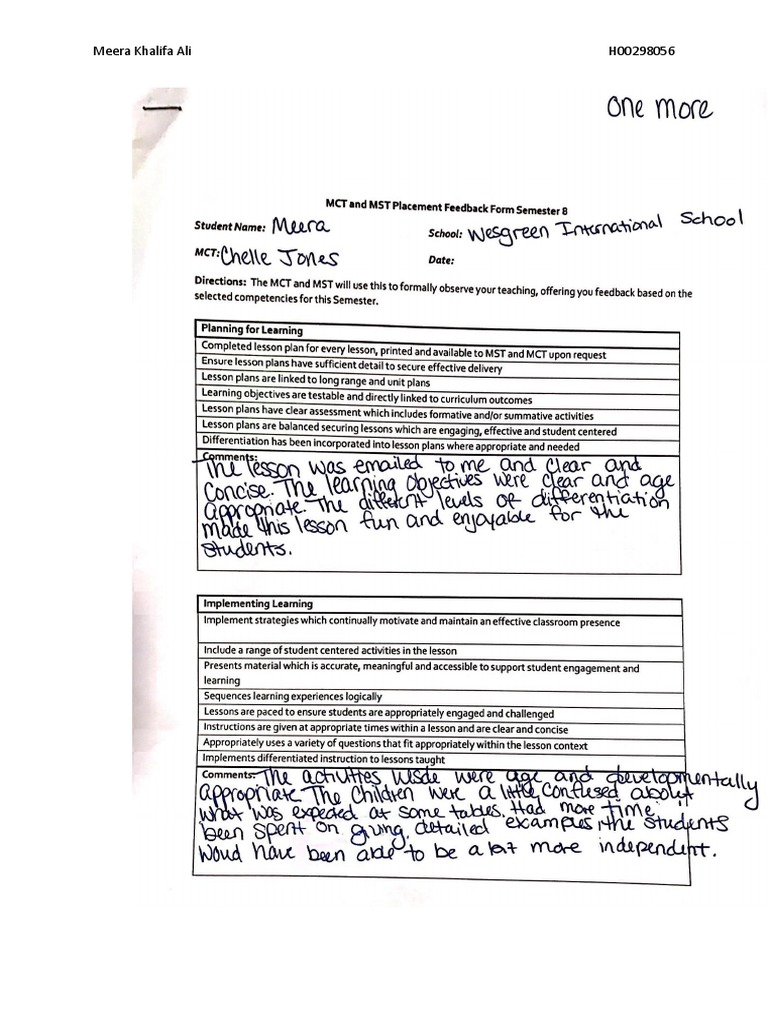 Meera Khalifa Ali H00298056
One more
MCT and MST Placement Feedback Form Semester 8
Student Name: Meera School: Wesgreen International School
MCT: Chelle Jones Date:
Directions: The MCT and MST will use this to formally observe your teaching, offering you feedback based on the
selected competencies for this Semester.
Planning for Learning
Completed lesson plan for every lesson, printed and available to MST and MCT upon request
Ensure lesson plans have sufficient detail to secure effective delivery
Lesson plans are linked to long range and unit plans
Learning objectives are testable and directly linked to curriculum outcomes
Lesson plans have clear assessment which includes formative and/or summative activities
Lesson plans are balanced securing lessons which are engaging, effective and student centered
Differentiation has been incorporated into lesson plans where appropriate and needed
Comments:
The lesson was emailed to me and clear and
concise. The learning objectives were clear and age
appropriate. The different levels of differentiation
made this lesson fun and enjoyable for the
students.
Implementing Learning
Implement strategies which continually motivate and maintain an effective classroom presence
Include a range of student centered activities in the lesson
Presents material which is accurate, meaningful and accessible to support student engagement and
learning
Sequences learning experiences logically
Lessons are paced to ensure students are appropriately engaged and challenged
Instructions are given at appropriate times within a lesson and are clear and concise
Appropriately uses a variety of questions that fit appropriately within the lesson context
Implements differentiated instruction to lessons taught
Comments: The activities were age and developmentally
appropriate. The children were a little confused about
what was expected at some tables. Had more time
been spent on giving detailed examples, the students
would have been able to be a bit more independent.